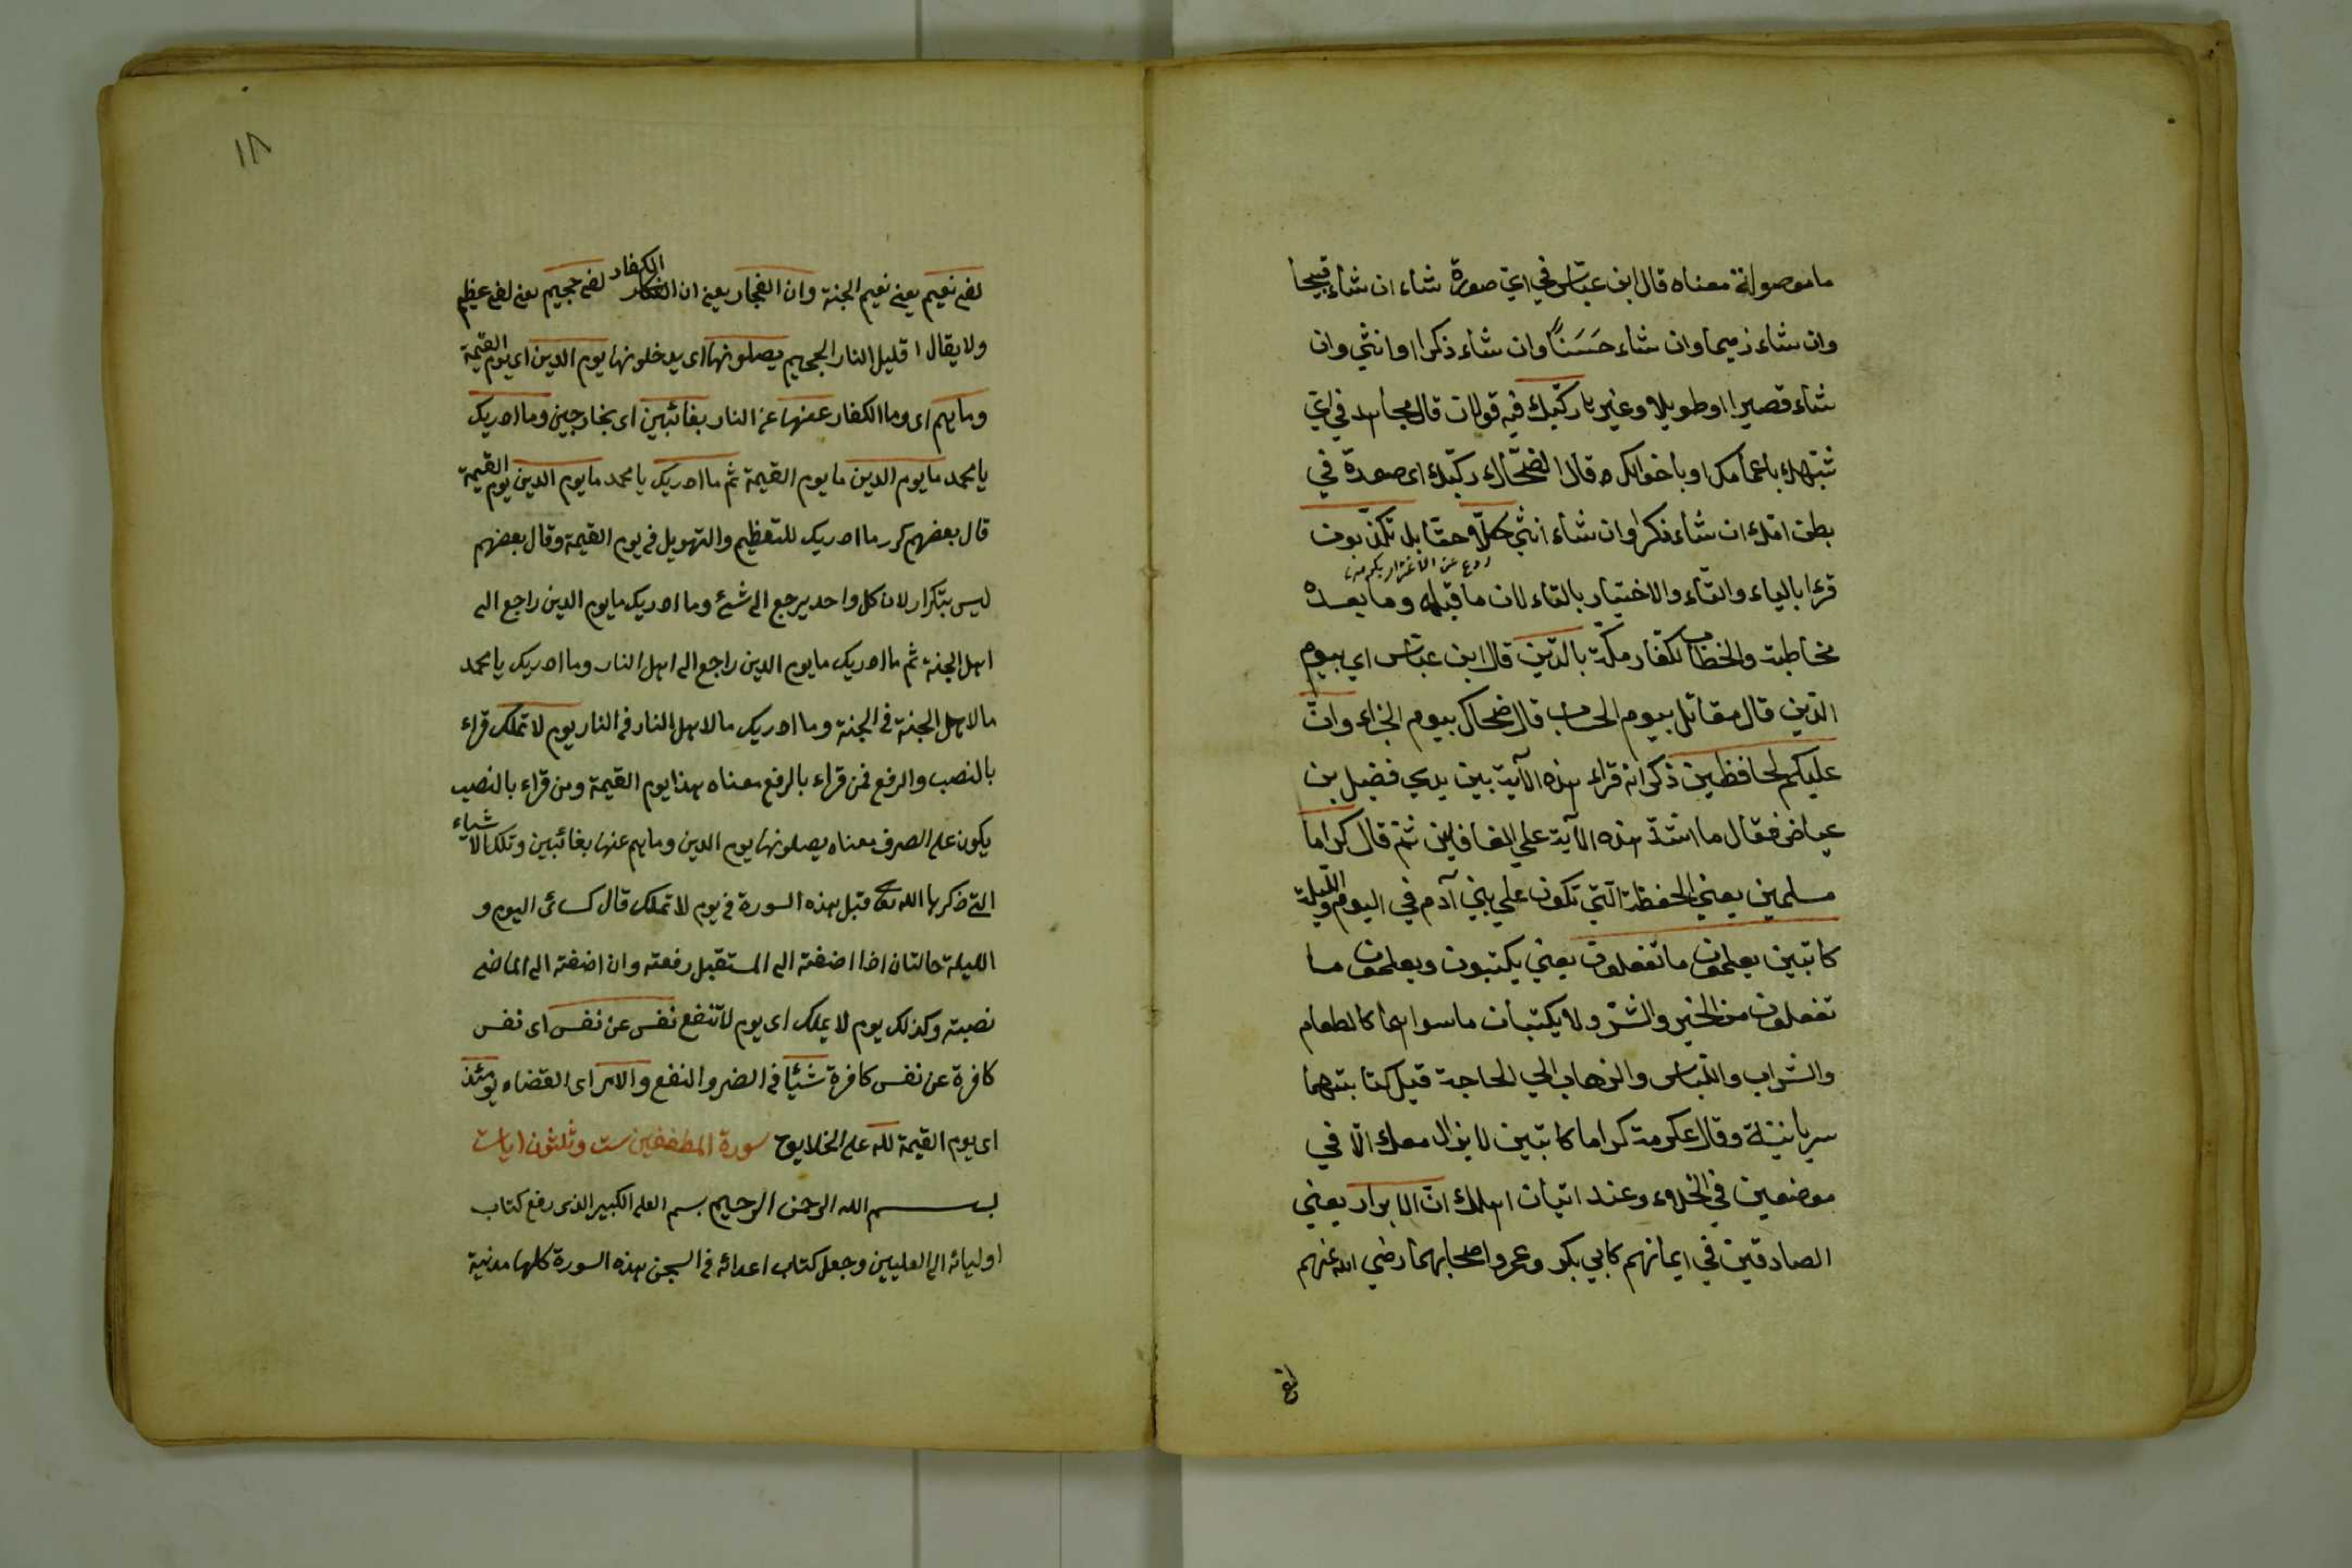 ما موصولة معناه قال ابن عباس في اي صورة شاء ان شاء قبيحا
وان شاء ذميما وان شاء حَسَنًا وان شاء ذكرا او انثي وان
شاء قصيرا او طويلا وغير يا ركّبك فيه قولان قال مجاهد في اي
شبهك باعمامك او باخوالك وقال الضحّاك ركّبك اى صورة في
بطن امك ان شاء ذكرا وان شاء انثي كلّا حقّا بل تكذّبون
ردع عن الاغترار بكم
قرءا بالياء والتاء والاختيار بالتاء لان ما قبله وما بعده
مخاطبة والخطاب لكفار مكّة بالدّين قال ابن عباس اي بيوم
الدّين قال مقاتل بيوم الحساب قال ضحاك بيوم الجزاء وانّ
عليكم لحافظين ذكر انه قراء هذه الآية بين يدي فضيل بن
عياض فقال ما اشدّ هذه الآية علي الغافلين ثم قال كراما
مسلمين يعني الحفظة التي تكون علي بني آدم في اليوم والليلة
كاتبين يعلمون ما تفعلون يعني يكتبون ويعلمون ما
تفعلون من الخير والشرّ ولا يكتبان ما سواهما كالطعام
والشراب واللباس والذهاب الي الحاجة قيل كتابتهما
سريانيّة وقال عكرمة كراما كاتبين لا يزال معك الّا في
موضعين في الخلاء وعند اتيان اهلك انّ الابرار يعني
الصادقين في ايمانهم كابي بكر وعمر واصحابهما رضي الله عنهم
لفي
١٨
لفى نعيم يعنى نعيم الجنة وان الفجار يعنى ان الكفار لفى جحيم يعنى لفى عظيم
ولا يقال لقليل النار الجحيم يصلونها اى يدخلونها يوم الدين اى يوم القيمة
وما هم اى وما الكفار عنها عن النار بغائبين اى بخارجين وما ادريك
يا محمد ما يوم الدين ما يوم القيمة ثم ما ادريك يا محمد ما يوم الدين يوم القيمة
قال بعضهم كرر ما ادريك للتعظيم والتهويل فى يوم القيمة وقال بعضهم
ليس بتكرار لان كل واحد يرجع الى شئ وما ادريك ما يوم الدين راجع الى
اهل الجنة ثم ما ادريك ما يوم الدين راجع الى اهل النار وما ادريك يا محمد
ما لاهل الجنة فى الجنة وما ادريك ما لاهل النار فى النار يوم لا تملك قراء
بالنصب والرفع فمن قراء بالرفع معناه هذا يوم القيمة ومن قراء بالنصب
يكون على الصرف معناه يصلونها يوم الدين وما هم عنها بغائبين وتلك الاشياء
التى ذكرها الله تعالى قبل هذه السورة فى يوم لا تملك قال كسائى اليوم و
الليلة حالتان اذا اضفته الى المستقبل رفعته وان اضفته الى الماضى
نصبته وكذلك يوم لا يملك اى يوم لا تنفع نفس عن نفس اى نفس
كافرة عن نفس كافرة شيئا فى الضر والنفع والامر اى القضاء يومئذ
اى يوم القيمة لله على الخلايق سورة المطففين ست وثلثون ايات
بسم الله الرحمن الرحيم بسم العلى الكبير الذى رفع كتاب
اوليائه الى العليين وجعل كتاب اعدائه فى السجن هذه السورة كلها مدنية